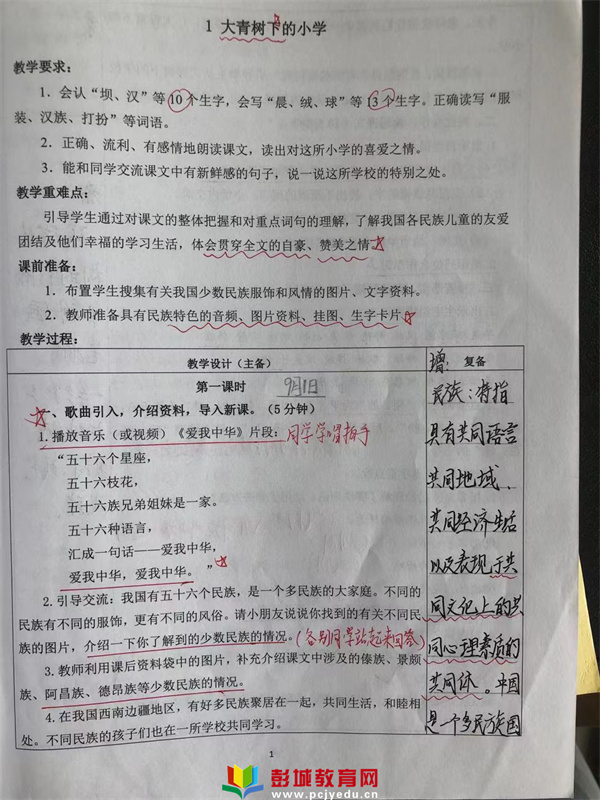 1 大青树下的小学
教学要求：
1．会认“坝、汉”等10个生字，会写“晨、绒、球”等13个生字。正确读写“服
装、汉族、打扮”等词语。
2．正确、流利、有感情地朗读课文，读出对这所小学的喜爱之情。
3．能和同学交流课文中有新鲜感的句子，说一说这所学校的特别之处。
教学重难点：
引导学生通过对课文的整体把握和对重点词句的理解，了解我国各民族儿童的友爱
团结及他们幸福的学习生活，体会贯穿全文的自豪、赞美之情。
课前准备：
1．布置学生搜集有关我国少数民族服饰和风情的图片、文字资料。
2．教师准备具有民族特色的音频、图片资料、挂图、生字卡片。
教学过程：
教学设计（主备）
第一课时 9月1日
一、歌曲引入，介绍资料，导入新课。（5分钟）
1.播放音乐（或视频）《爱我中华》片段：同学学习
“五十六个星座，
五十六枝花，
五十六族兄弟姐妹是一家。
五十六种语言，
汇成一句话——爱我中华，
爱我中华，爱我中华。”
2.引导交流：我国有五十六个民族，是一个多民族的大家庭。不同的
民族有不同的服饰，更有不同的风俗。请小朋友说说你找到的有关不同民
族的图片，介绍一下你了解到的少数民族的情况。（各别同学站起来回答）
3.教师利用课后资料袋中的图片，补充介绍课文中涉及的傣族、景颇
族、阿昌族、德昂族等少数民族的情况。
4.在我国西南边疆地区，有好多民族聚居在一起，共同生活，和睦相
处。不同民族的孩子们也在一所学校共同学习。
增：复备
民族：指
具有共同语言
共同地域、
共同经济生活
以及表现于共
同文化上的共
同心理素质的
共同体。中国
是一个多民族国
1
彭城教育网
www.pcjyedu.cn